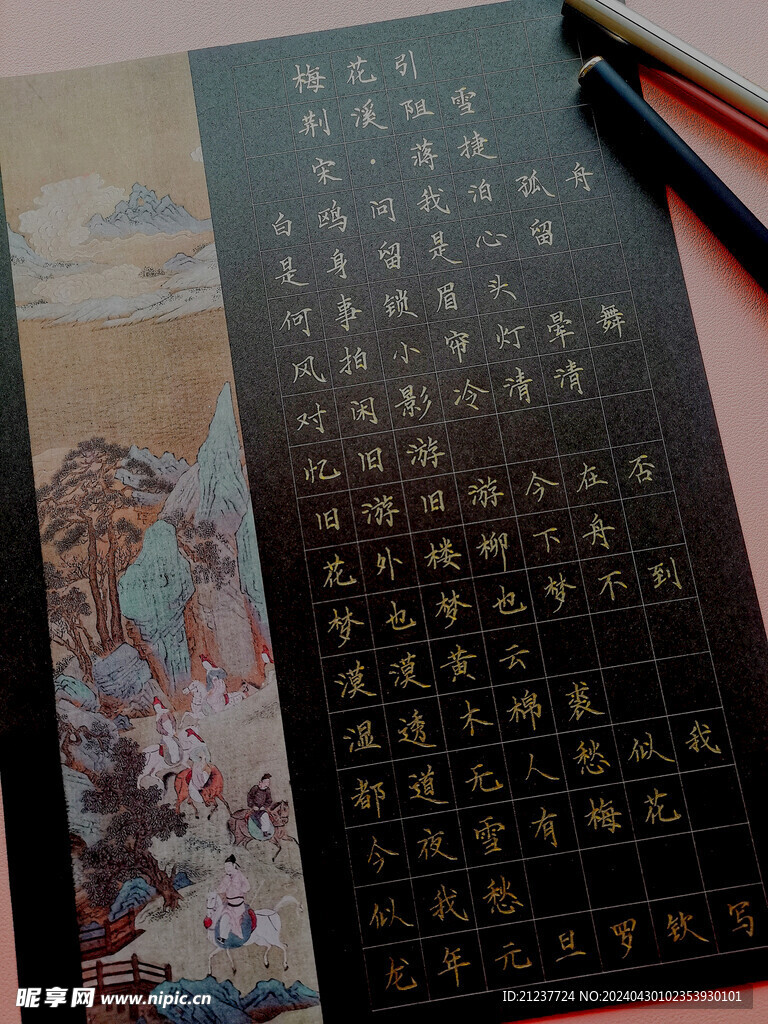 梅花引
荆溪阻雪
宋·蒋捷
白鸥问我泊孤舟
是身留是心留
何事锁眉头
风拍小帘灯晕舞
对闲影冷清清
忆旧游
旧游旧游今在否
花外楼柳下舟
梦也梦也梦不到
漠漠黄云
湿透木棉裘
都道无人愁似我
今夜雪有梅花
似我愁
龙年元旦罗钦写
昵享网 www.nipic.cn
ID:21237724 NO:20240430102353930101